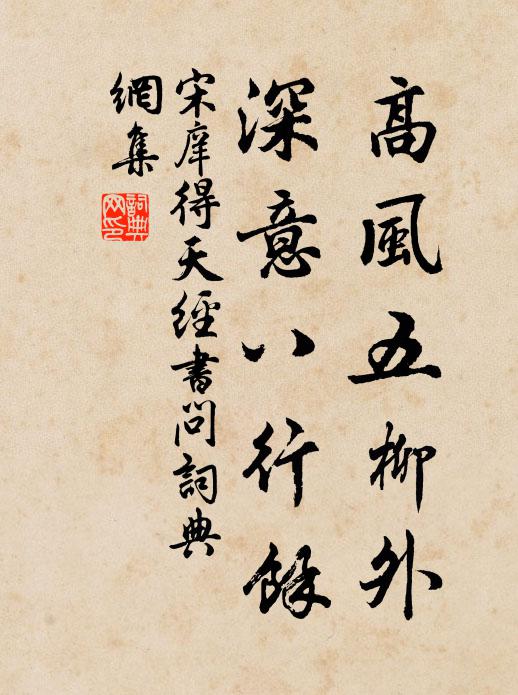 高風五柳外
深意八行餘
宋庠得天經書問詞典
網集
詞典
网印